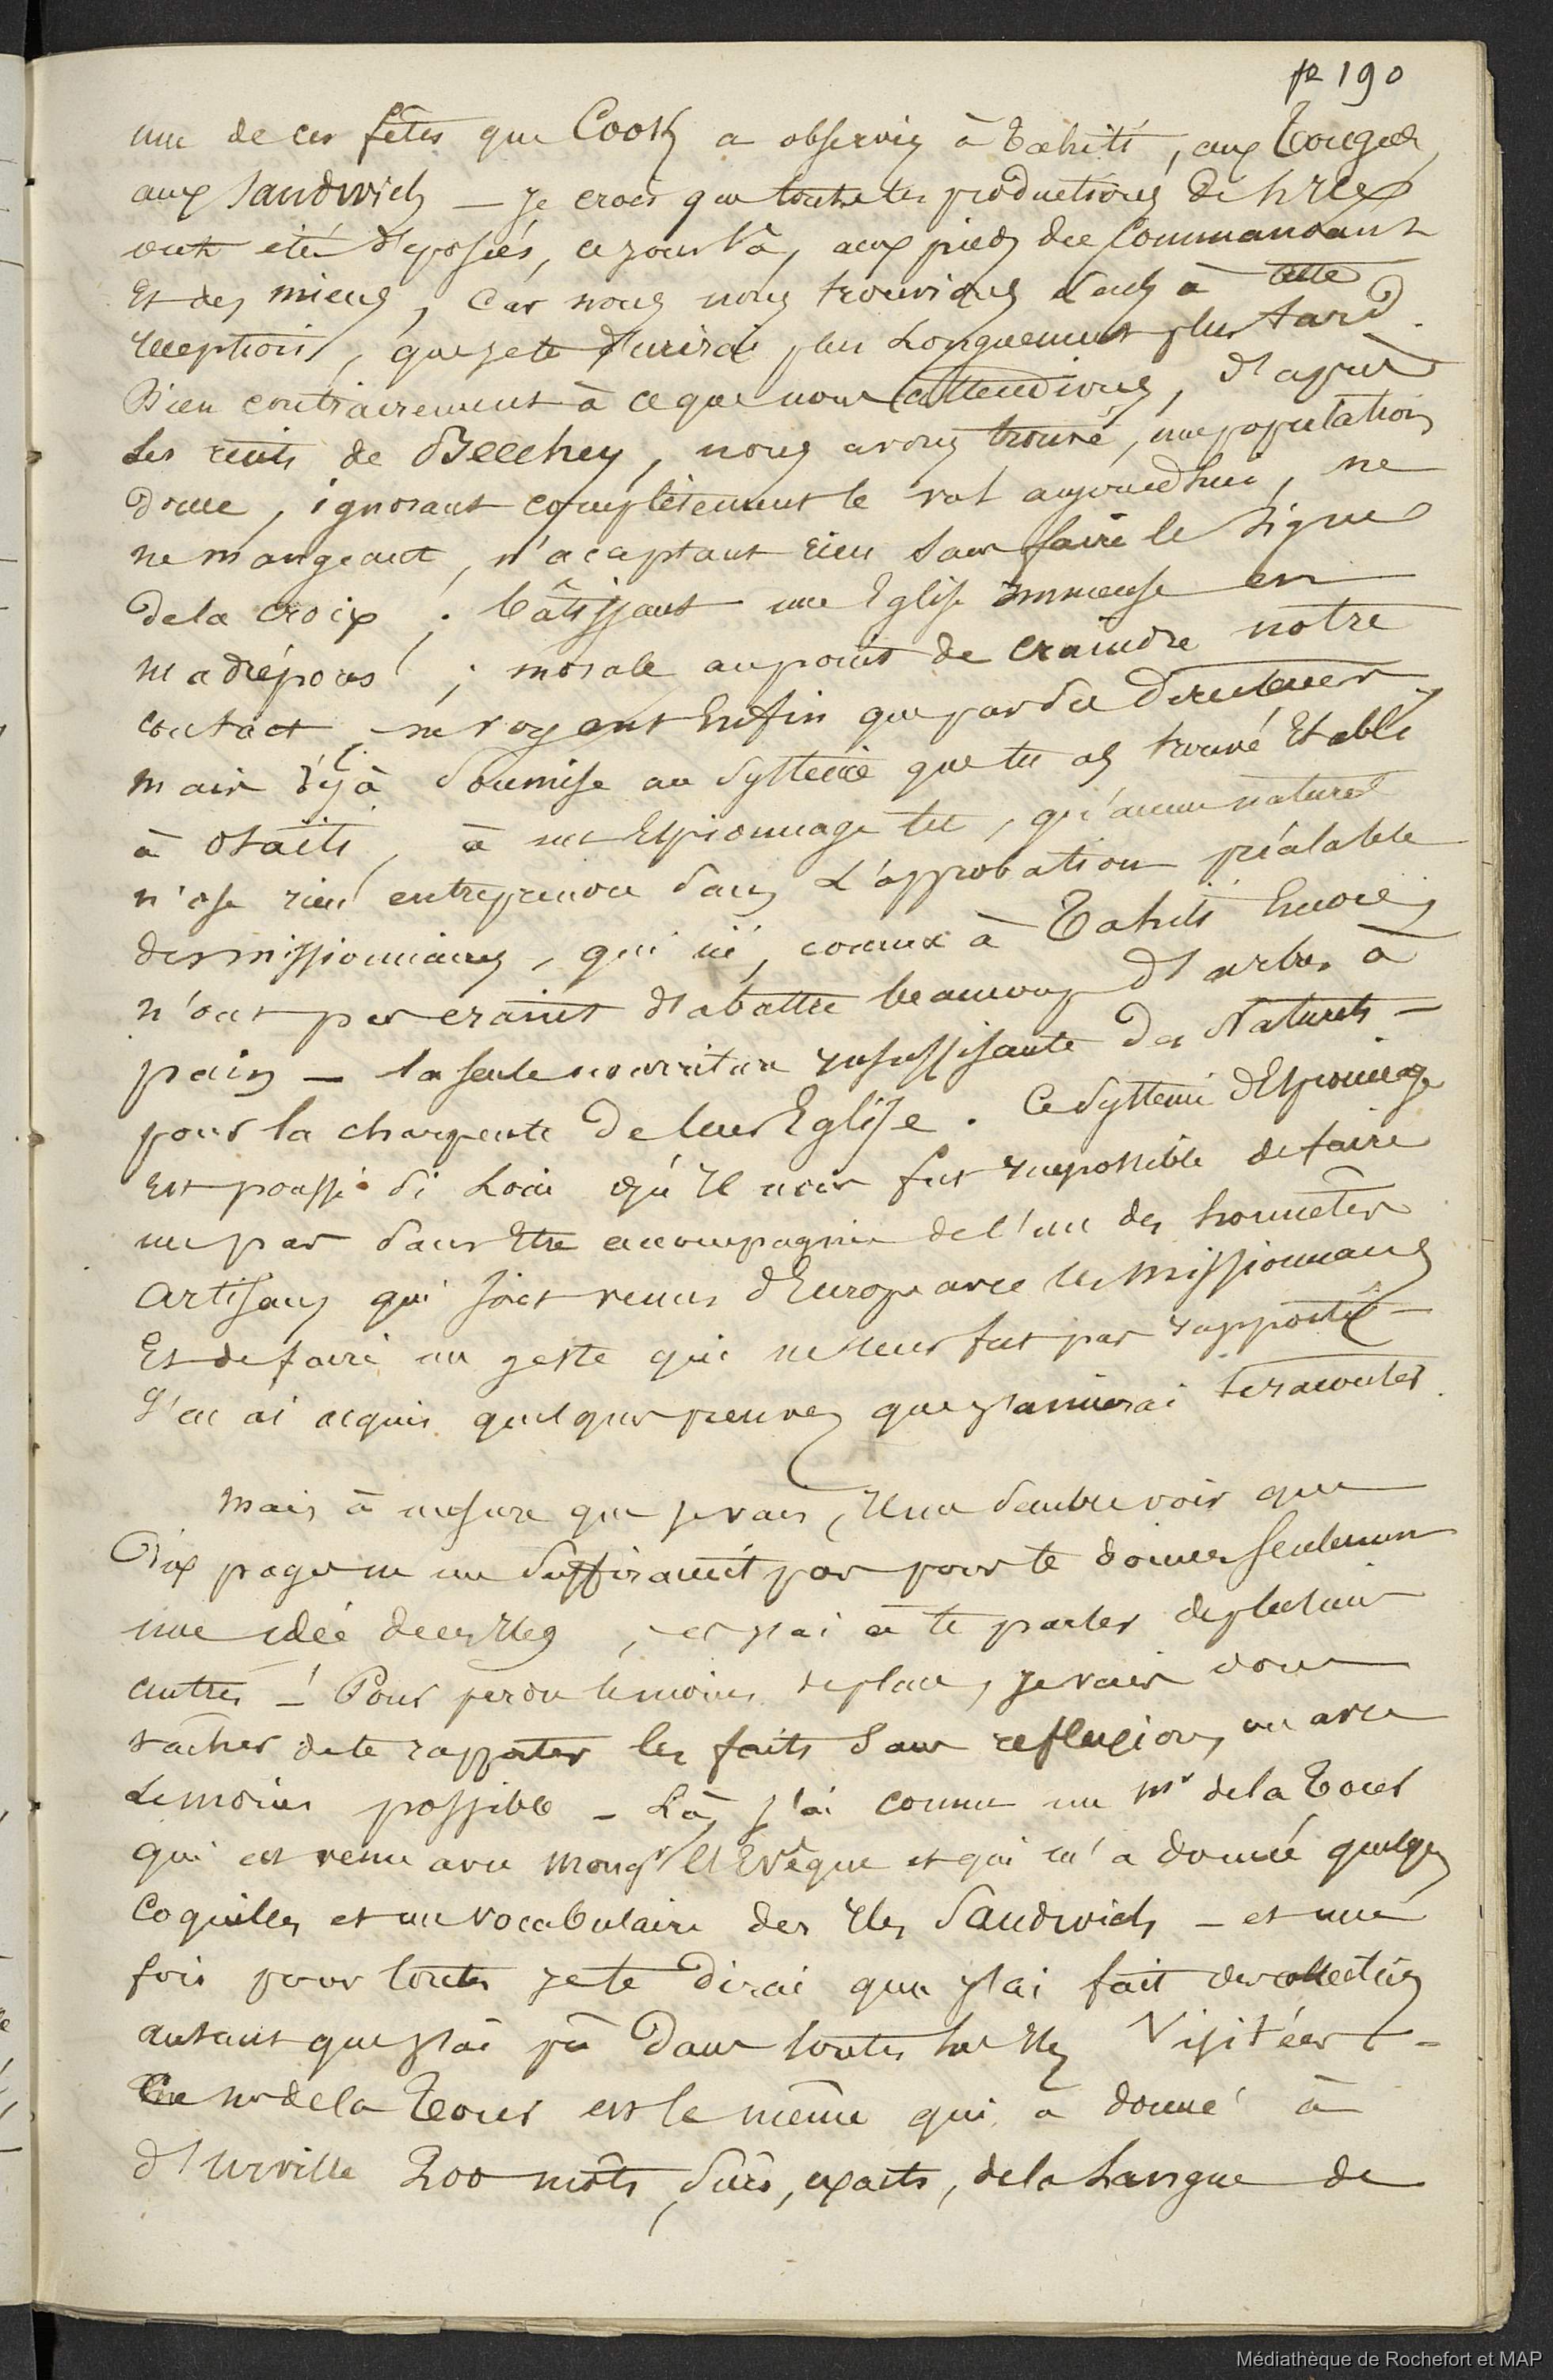 p 190
une de ces fêtes que Cook a observées à Tahiti, aux Tongas,
aux Sandwich — je crois que toutes les productions de l'ile
ont été déposées, ce jour là, aux pieds du Commandant
et des miens, car nous nous trouvions seuls à cette
réception, que je te décrirai plus longuement plus tard.
Bien contrairement à ce que nous attendions, d'après
les récits de Beechey, nous avons trouvé, une population
douce, ignorant complètement le vol aujourd'hui, ne
ne mangeant, n'acceptant rien sans faire le signe
de la croix ; bâtissant une Eglise immense en
madrépores ; morale au point de craindre notre
contact, ne voyant Enfin que par ses Directeurs
mais déjà soumise au système que tu as trouvé Etabli
à Otaïti, à un Espionnage tel, qu'aucun naturel
n'ose rien entreprendre sans l'approbation préalable
des missionnaires, qui ici, comme à Tahiti Encore,
n'ont pas craint d'abattre beaucoup d'arbres à
pain — la seule nourriture insuffisante des Naturels —
pour la charpente de leur Eglise. Ce système d'Espionnage
est poussé si loin qu'il nous fut impossible de faire
un pas sans Etre accompagné de l'un des honnêtes
artisans qui sont venus d'Europe avec les missionnaires
Et de faire un geste qui ne leur fut pas rapporté —
J'en ai acquis quelques preuves que j'aimerai te raconter.
Mais à mesure que je vais, il me semble voir que
Dix pages ne me suffiraient pas pour te donner seulement
une idée de ces Iles, et j'ai à te parler de plusieurs
autres —! Pour perdre le moins de place, je vais donc
tâcher de te rapporter les faits sans reflexions, ou avec
le moins possible — Là, j'ai connu un Mr de la Tour
qui est venu avec Mongr l'Evêque et qui m'a donné quelques
Coquilles et un vocabulaire des Iles Sandwich — et une
fois pour toutes je te dirai que j'ai fait des collections
autant que j'ai pû dans toutes les Iles Visitées —
Ce Mr de la Tour est le même qui a donné à
d'Urville 200 mots, sûrs, exacts, de la langue de
Médiathèque de Rochefort et MAP